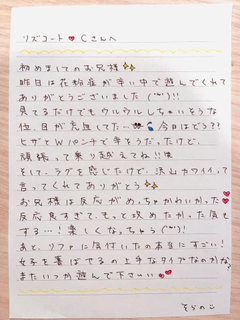 リズコート♥Cさんへ
初めましてのお兄様✨
昨日は花粉症が辛い中で遊んでくれて
ありがとうございました(˙˘˙)!!
見てるだけでもウルウルしちゃいそうな
位、目が充血してた…💧今日はどう??
ヒザとWパンチで辛そうだったけど、
頑張って乗り越えてね!!
そして、ラグを感じたけど、沢山カワイイって
言ってくれてありがとう✨
お兄様は反応がめっちゃかわいかった♥
反応良すぎて、もっと攻めたかった気も
する…!楽しくなっちゃう(˙˘˙)!
あと、リファに気付いたの本当にすごい!
女子を喜ばせるの上手なタイプなのかな?
またいつか遊んで下さいい♥
そらのこ